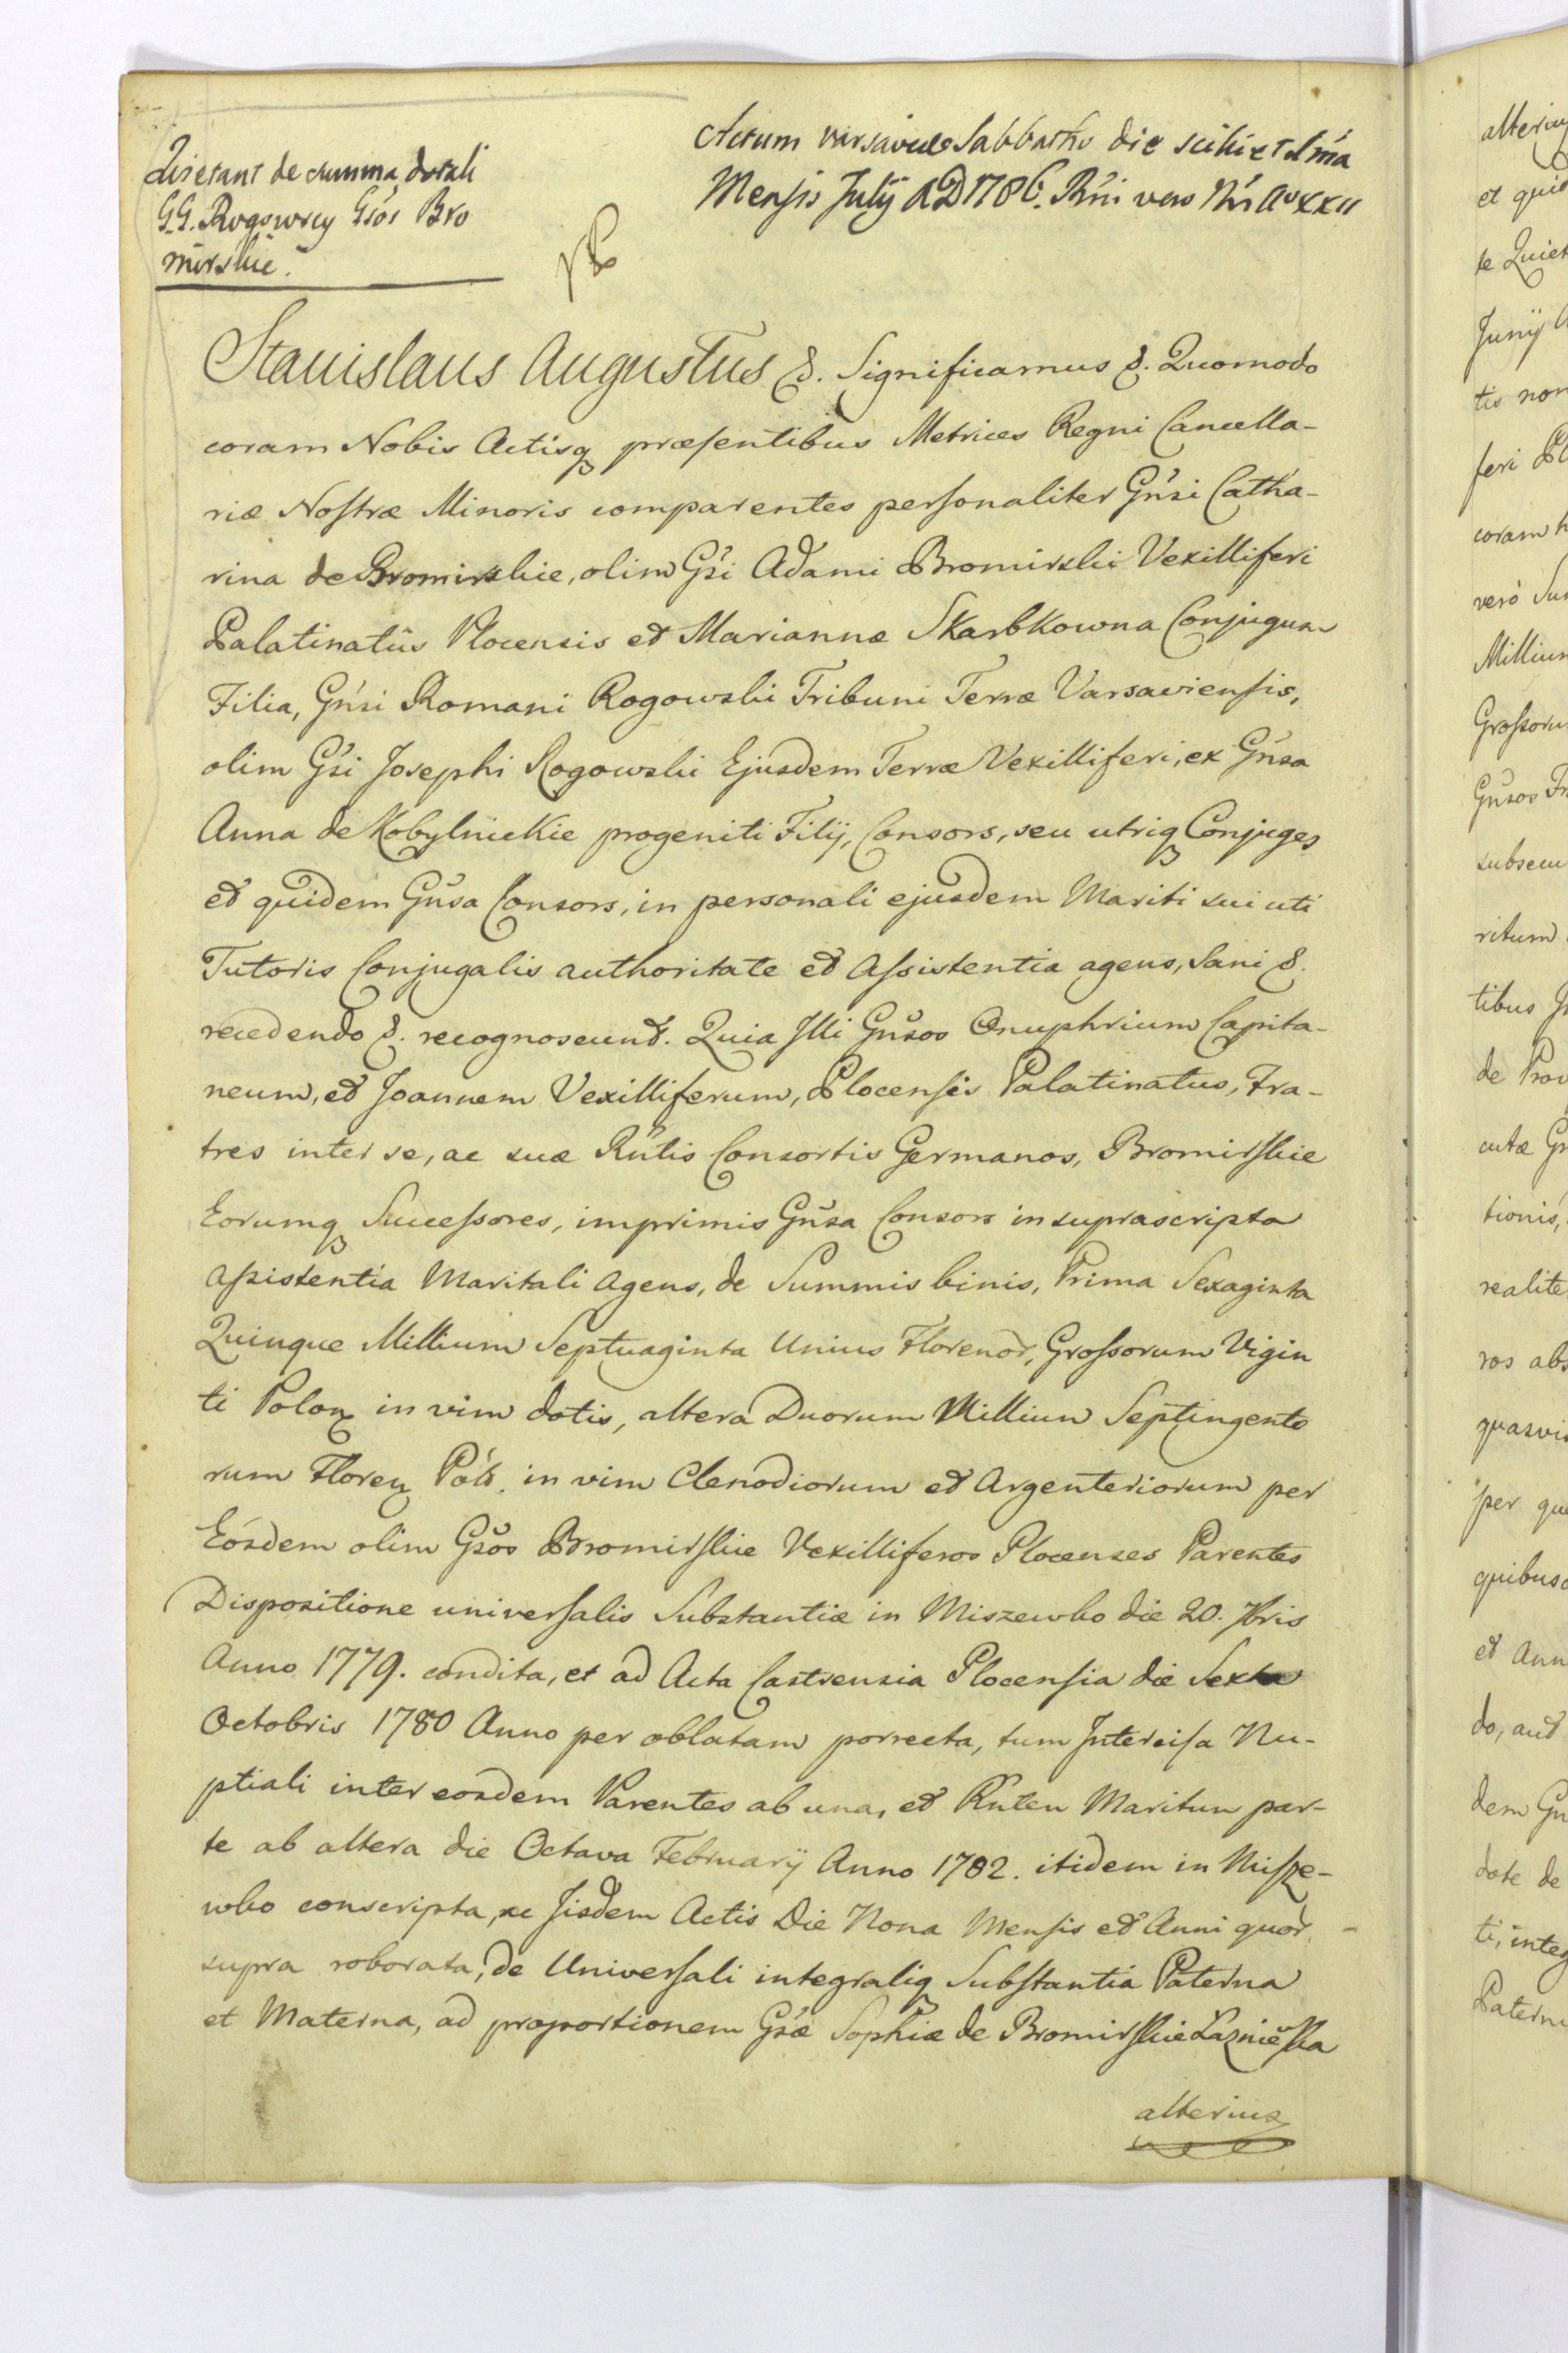 Quietant de summa dotali
G.G. Rogowscy Gsos Bro
mirskie.
Actum Varsaviae Sabbatho die scilicet Ima
Mensis Julÿ AD 1786. Rni vero Nri Ao XXII
Stanislaus Augustus &. Significamus &. Quomodo
coram Nobis Actisq præsentibus Metrices Regni Cancella-
riæ Nostræ Minoris comparentes personaliter Gnsi Catha-
rina de Bromirskie, olim Gsi Adami Bromirski Vexilliferi
Palatinatûs Plocensis et Mariannæ Skarbkowna Conjugum
Filia, Gnsi Romani Rogowski Tribuni Terræ Varsaviensis,
olim Gsi Josephi Rogowski Ejusdem Terræ Vexilliferi, ex Gnsa
Anna de Kobylnickie progeniti Filij, Consors, seu utriq Conjuges
et quidem Gnsa Consors, in personali ejusdem Mariti sui uti
Tutoris Conjugalis authoritate et Assistentia agens, Sani &.
recedendo &. recognoscunt. Quia Illi Gnsos Onuphrium Capita-
neum, et Joannem Vexilliferum, Plocensis Palatinatus, Fra-
tres inter se, ac suæ Rntis Consortis Germanos, Bromirskie
Eorumq Successores, imprimis Gnsa Consors in suprascripta
Assistentia Maritali Agens, de Summis binis, Prima Sexaginta
Quinque Millium Septuaginta Unius Florenor, Grossorum Vigin
ti Polon in vim dotis, altera Duorum Millium Septingento
rum Floren Pol. in vim Clenodiorum et Argenteriorum per
Eosdem olim Gsos Bromirskie Vexilliferos Plocenses Parentes
Dispositione universalis Substantiæ in Miszewko die 20. 7bris
Anno 1779. condita, et ad Acta Castrensia Plocensia die Sexta
Octobris 1780 Anno per oblatam porrecta, tum Intercisa Nu-
ptiali inter eosdem Parentes ab una, et Rnten Maritum par-
te ab altera die Octava Februarÿ Anno 1782. itidem in Misze-
wko conscripta, ac Iisdem Actis Die Nona Mensis et Anni quor
supra roborata, de Universali integraliq Substantia Paterna
et Materna, ad proportionem Gsæ Sophiæ de Bromirskie Łazniĕska
alterius
alterius
et quie
te Quiet
Junÿ
tis non
feri
coram
verò Su
Millium
Grossoru
Gnsos Fr
subsecu
ritum
tibus
de Prov
cutæ
tionis,
realite
ros abs
quasvis
per qu
quibusc
et Ann
do, aut
dem Gn
dote de
ti, integ
Patern